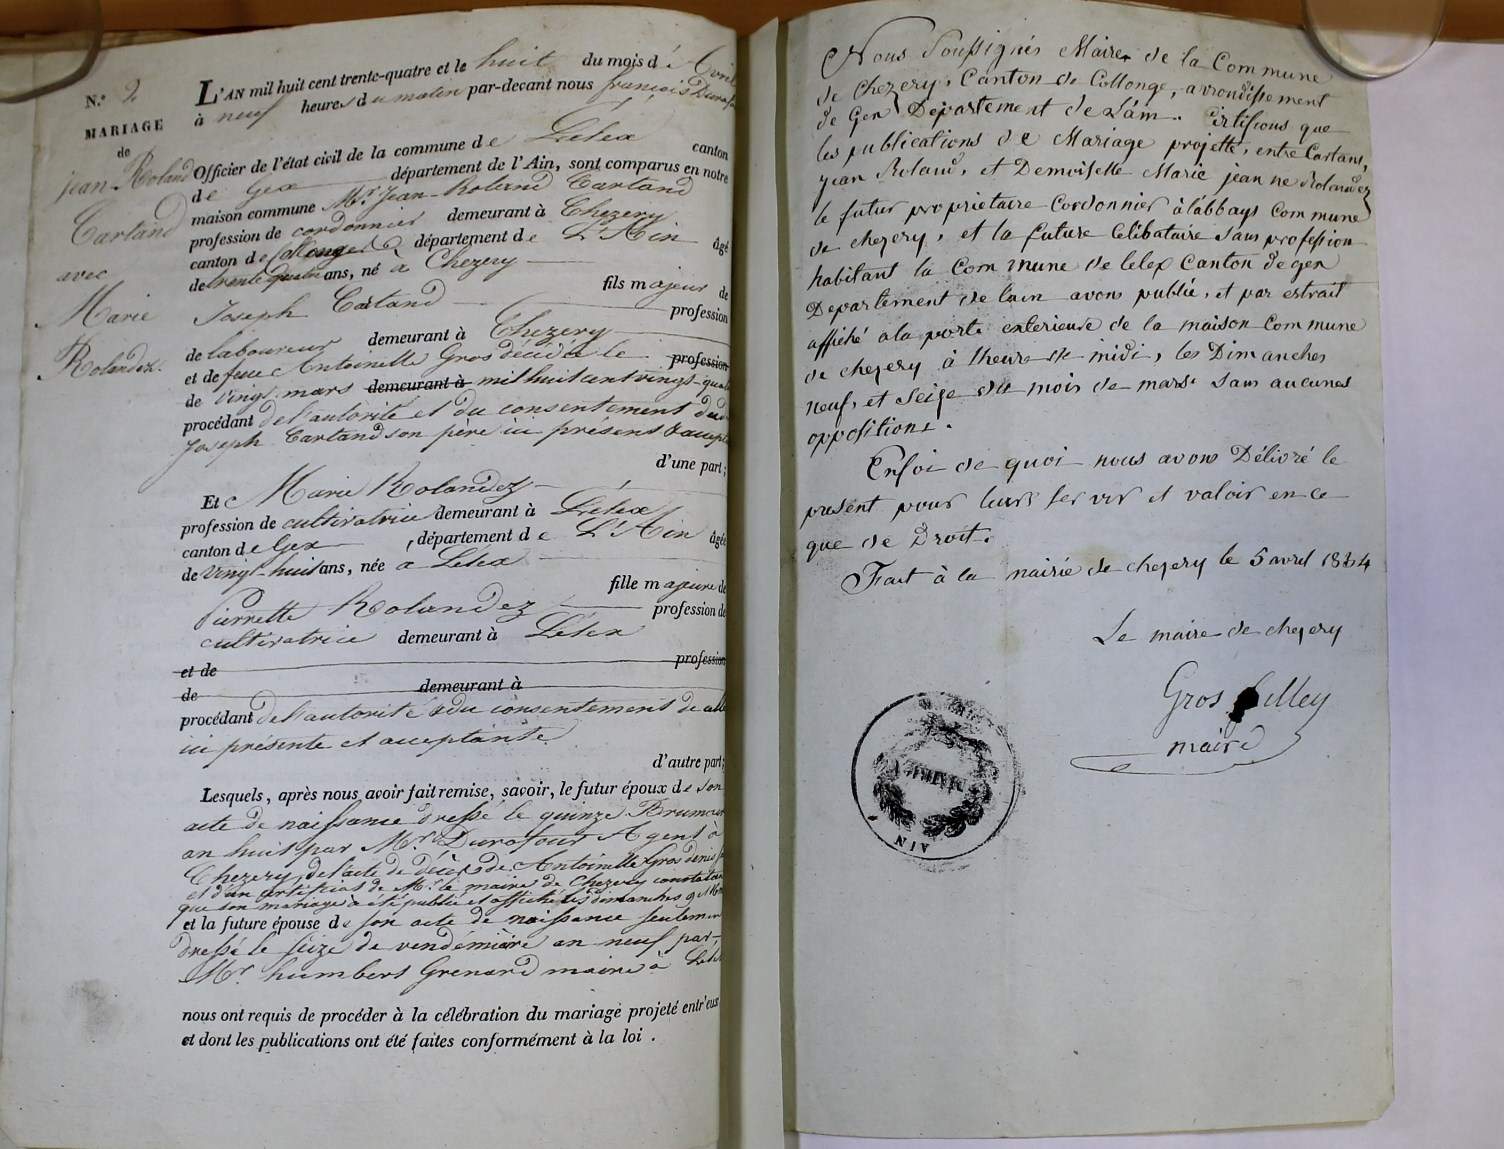 N.º 2
MARIAGE
de
jean-Roland
Cartand
avec
Marie
Rolandez.
L'AN mil huit cent trente-quatre et le huit du mois d'Avril
à neuf heures du matin par-devant nous françois Durafour
Officier de l'état civil de la commune de Lélex canton
de Gex département de l'Ain, sont comparus en notre
maison commune Mr Jean-Roland Cartand
profession de cordonnier demeurant à Chezery
canton de Collonges, département de L'Ain âgé
de trente quatre ans, né à Chezery
fils majeur de
Joseph Cartand profession
de laboureur demeurant à Chezery
et de feue Antoinette Gros décédée le profession
de vingt mars demeurant à mil huit cent vingt-quatre
procédant de l'autorité et du consentement dudit
Joseph Cartand son père ici présent & accept
d'une part;
Et Marie Rolandez
profession de cultivatrice demeurant à Lélex
canton de Gex, département de L'Ain âgée
de vingt-huit ans, née à Lélex
fille majeure de
Pierrette Rolandez profession de
cultivatrice demeurant à Lélex
et de profession
de demeurant à
procédant de l'autorité & du consentement de elle
ici présente et acceptante
d'autre part;
Lesquels, après nous avoir fait remise, savoir, le futur époux de son
acte de naissance dressé le quinze Brumaire
an huit par Mr Durafour Agent à
Chezery, de l'acte de décès de Antoinette Gros
et d'un certificat de Mr le maire de Chezery constatant
que son mariage a été publié et affiché les dimanches 9 et 16
et la future épouse de son acte de naissance seulement
dressé le seize de vendémiaire an neuf par
Mr humbert Grenard maire à Lélex
nous ont requis de procéder à la célébration du mariage projeté entr'eux
et dont les publications ont été faites conformément à la loi .
Nous Soussignés Maire de la Commune
de Chezery, Canton de Collonge, arrondissement
de Gex Département de L'ain. Certifions que
les publications de Mariage projetté, entre Cartand,
jean Roland, et Demoiselle Marie jeanne Rolandez
le futur propriétaire Cordonnier à l'abbays Commune
de chezery, et la future Célibataire Sans profession
habitant la Commune de lelex Canton de gex
Departement de l'ain avons publié, et par extrait
affiché a la porte exterieure de la maison Commune
de chezery à l'heure de midi, les Dimanches
neuf, et Seize du mois de mars. Sans aucunes
oppositions.
En foi de quoi nous avons Délivré le
present pour leurs servir et valoir en ce
que de Droit.
Fait à la mairie de chezery le 5 avril 1834
Le maire de chezery
Gros Gilley
maire
MAIRIE
AIN